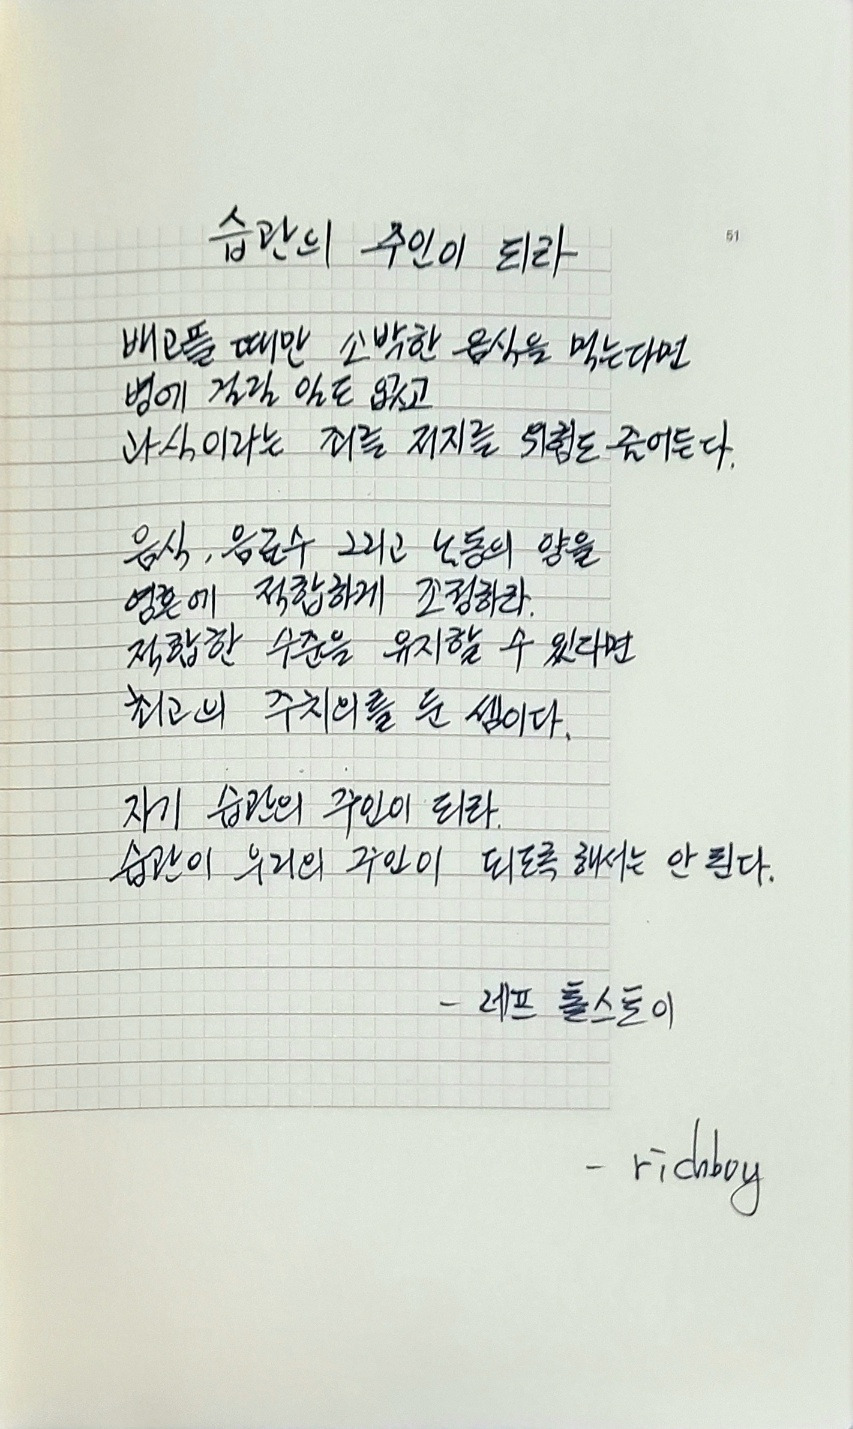 습관의 주인이 되라
51
배고플 때만 소박한 음식을 먹는다면
병에 걸릴 일도 없고
과식이라는 죄를 저지를 위험도 줄어든다.
음식, 음료수 그리고 노동의 양을
영혼에 적합하게 조정하라.
적합한 수준을 유지할 수 있다면
최고의 주치의를 둔 셈이다.
자기 습관의 주인이 되라.
습관이 우리의 주인이 되도록 해서는 안 된다.
- 레프 톨스토이
- richboy